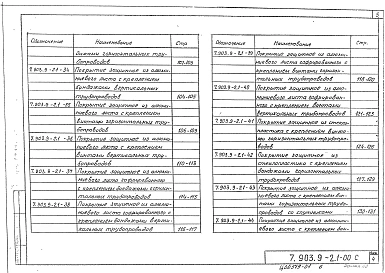 5
Обозначение Наименование Стр.
винтами горизонтальных тру-
бопроводов 101-103
7.903.9-2.1-34 Покрытие защитное из алюми-
ниевого листа с креплением
бандажами вертикальных
трубопроводов 104-105
7.903.9-2.1-35 Покрытие защитное из алюми-
ниевого листа с креплением
винтами горизонтальных трубо-
проводов 106-109
7.903.9-2.1-36 Покрытие защитное из алюми-
ниевого листа с креплением
винтами вертикальных тру-
бопроводов 110-113
7.903.9-2.1-37 Покрытие защитное из алюми-
ниевого листа гофрированного
с креплением бандажами горизон-
тальных трубопроводов 114-115
7.903.9-2.1-38 Покрытие защитное из алюми-
ниевого листа гофрированного
с креплением бандажами верти-
кальных трубопроводов 116-117
Обозначение Наименование Стр.
7.903.9-2.1-39 Покрытие защитное из алюми-
ниевого листа гофрированного с
креплением винтами горизон-
тальных трубопроводов 118-120
7.903.9-2.1-40 Покрытие защитное из алю-
миниевого листа гофрирован-
ного с креплением винтами
вертикальных трубопроводов 121-123
7.903.9-2.1-41 Покрытие защитное из
пластика с креплением винта-
ми горизонтальных трубопро-
водов 124-126
7.903.9-2.1-42 Покрытие защитное из
стеклопластика с креплением
бандажами горизонтальных
трубопроводов 127-129
7.903.9-2.1-43 Покрытие защитное из алюми-
ниевого листа с креплением вин-
тами горизонтальных трубо-
проводов со спутниками 130-131
7.903.9-2.1-44 Покрытие защитное из алюми-
ниевого листа с креплением
бандажами верти
7.903.9-2.1-00 С
4